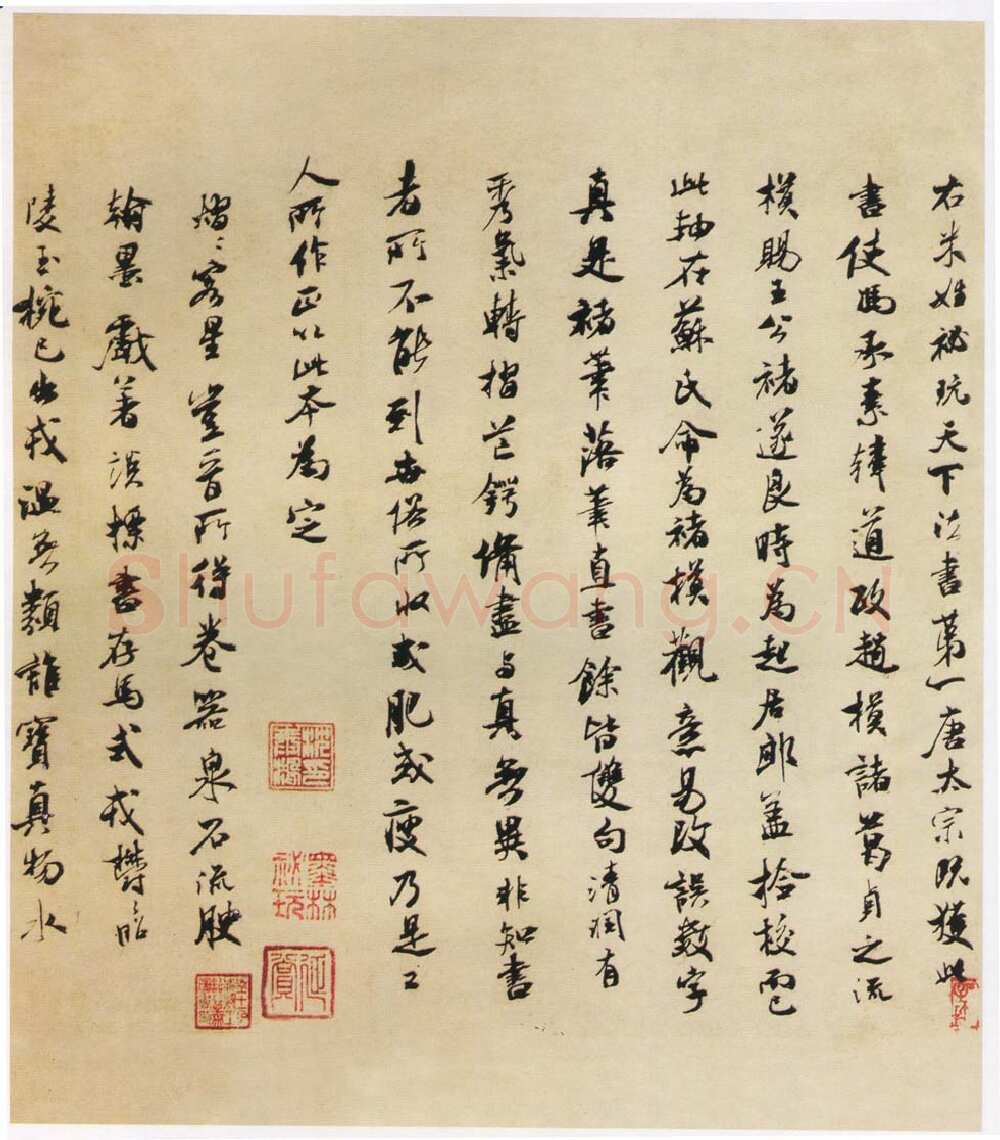 右米姓祕玩天下法書第一唐太宗既獲此
書使馮承素韓道政趙模諸葛貞之流
模賜王公褚遂良時為起居郎蓋撿校而已
此軸在蘇氏命為褚模觀意易改誤數字
真是褚筆落筆直書餘皆雙勾清潤有
秀氣轉摺芒鍔備盡與真無異非知書
者所不能到世俗所收或肥或瘦乃是工
人所作正以此本為定
熠熠客星豈晉所得卷器泉石流腴
翰墨戲著談標書存馬式戎鬱鬱昭
陵玉椀已出戎溫無類誰寶真物水
Shufawang.CN